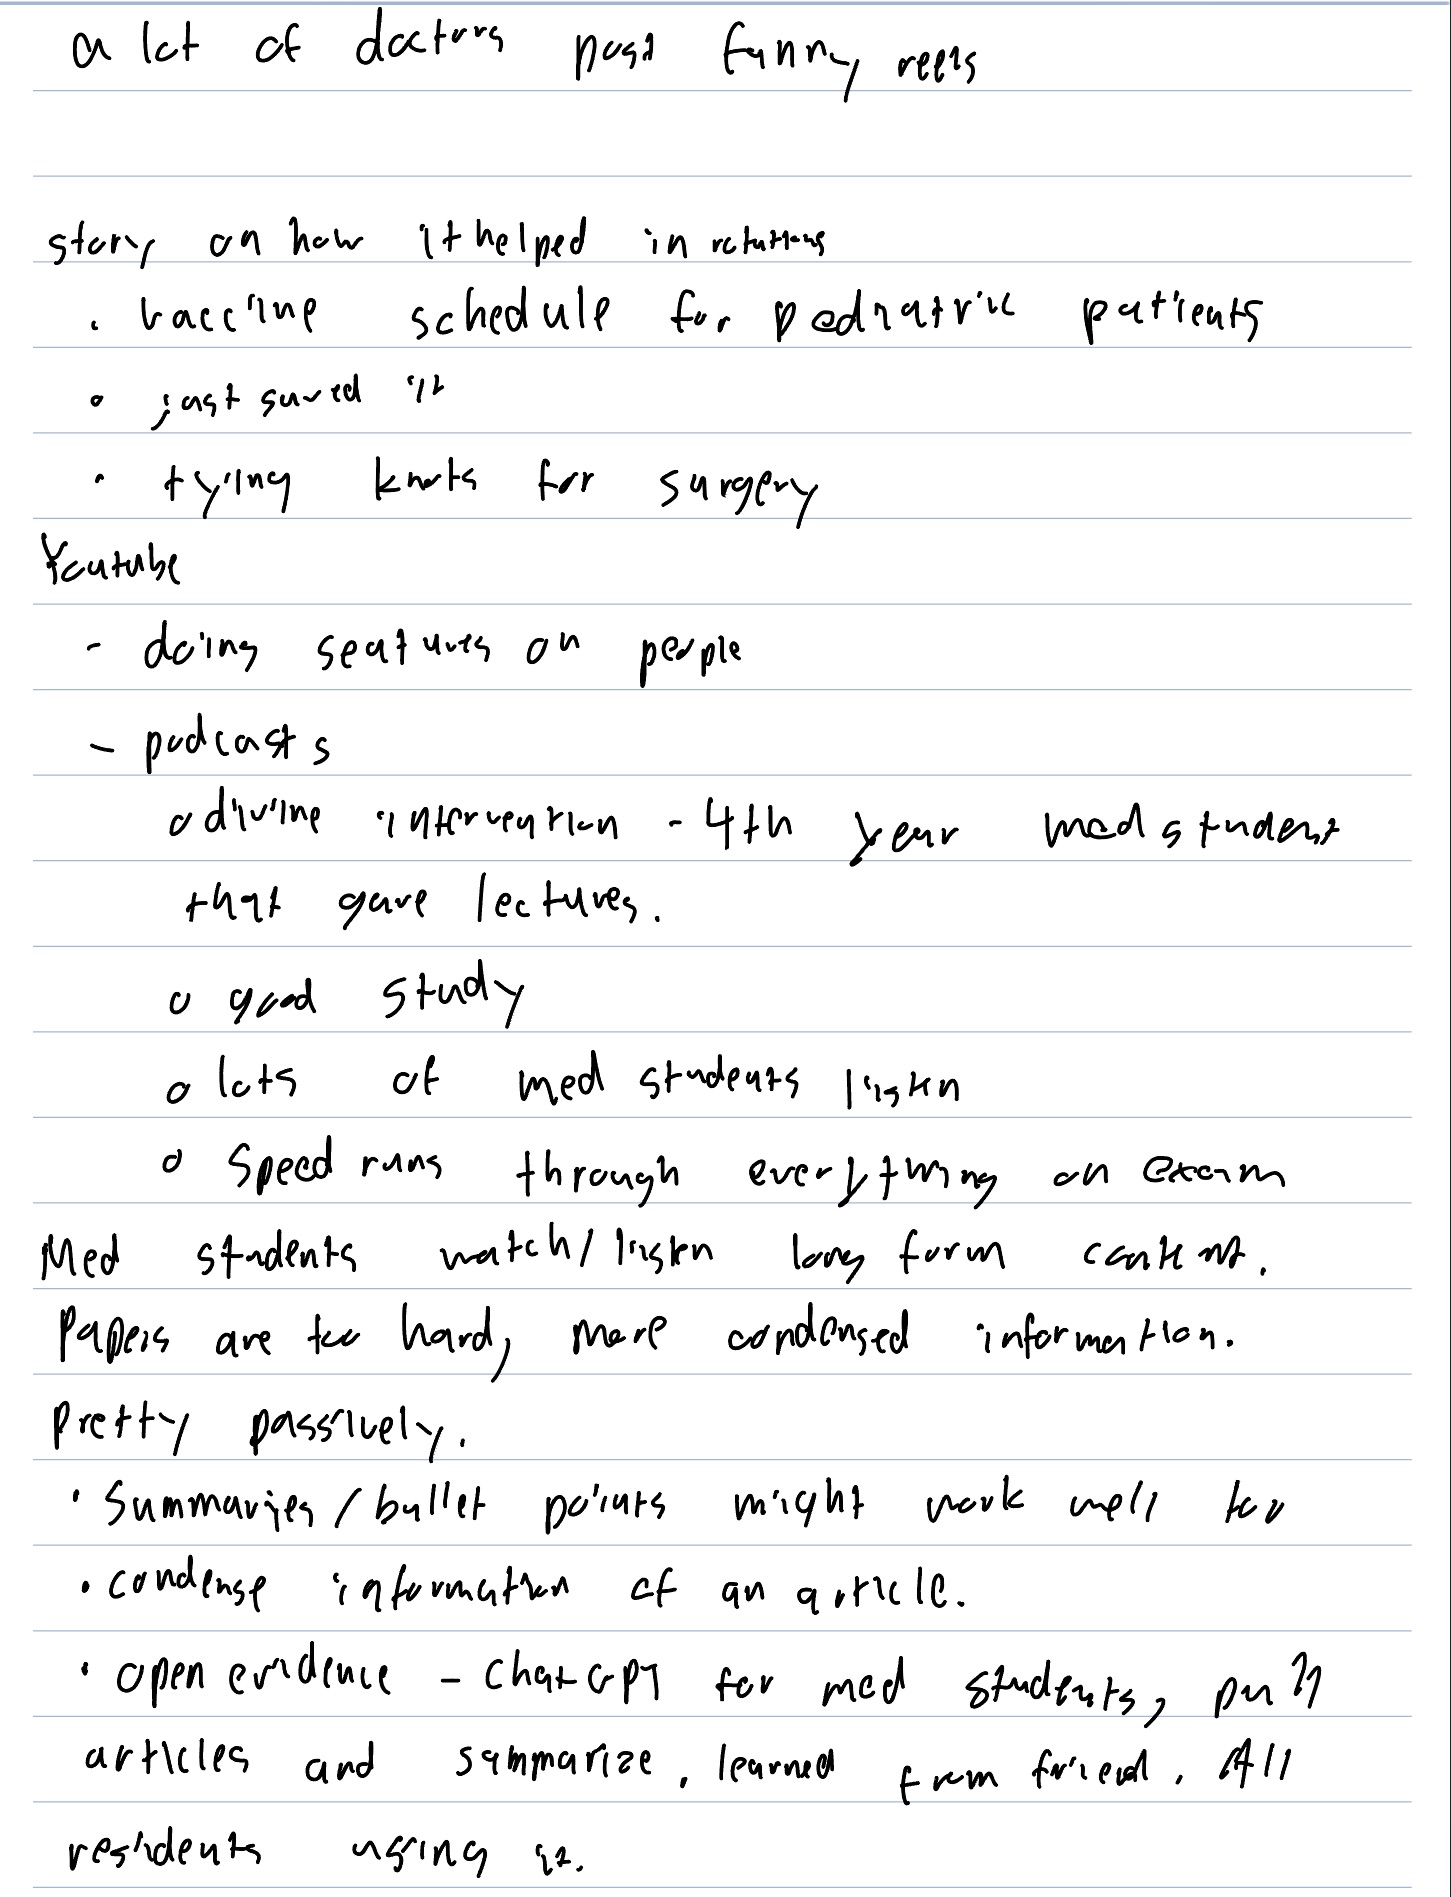 a lot of doctors post funny reels
story on how it helped in rotations
• vaccine schedule for pediatric patients
• just saved it
• tying knots for surgery
Youtube
- doing seatures on people
- podcasts
o divine intervention - 4th year med student
that gave lectures.
o good study
o lots of med students listen
o speed runs through everything on exam
Med students watch/listen long form content.
Papers are too hard, more condensed information.
Pretty passively.
• Summaries/bullet points might work well too
• condense information of an article.
• open evidence - ChatGPT for med students, pull
articles and summarize, learned from friend. All
residents using it.